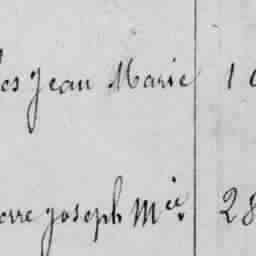 es Jean Marie 1
erre joseph Mie. 28